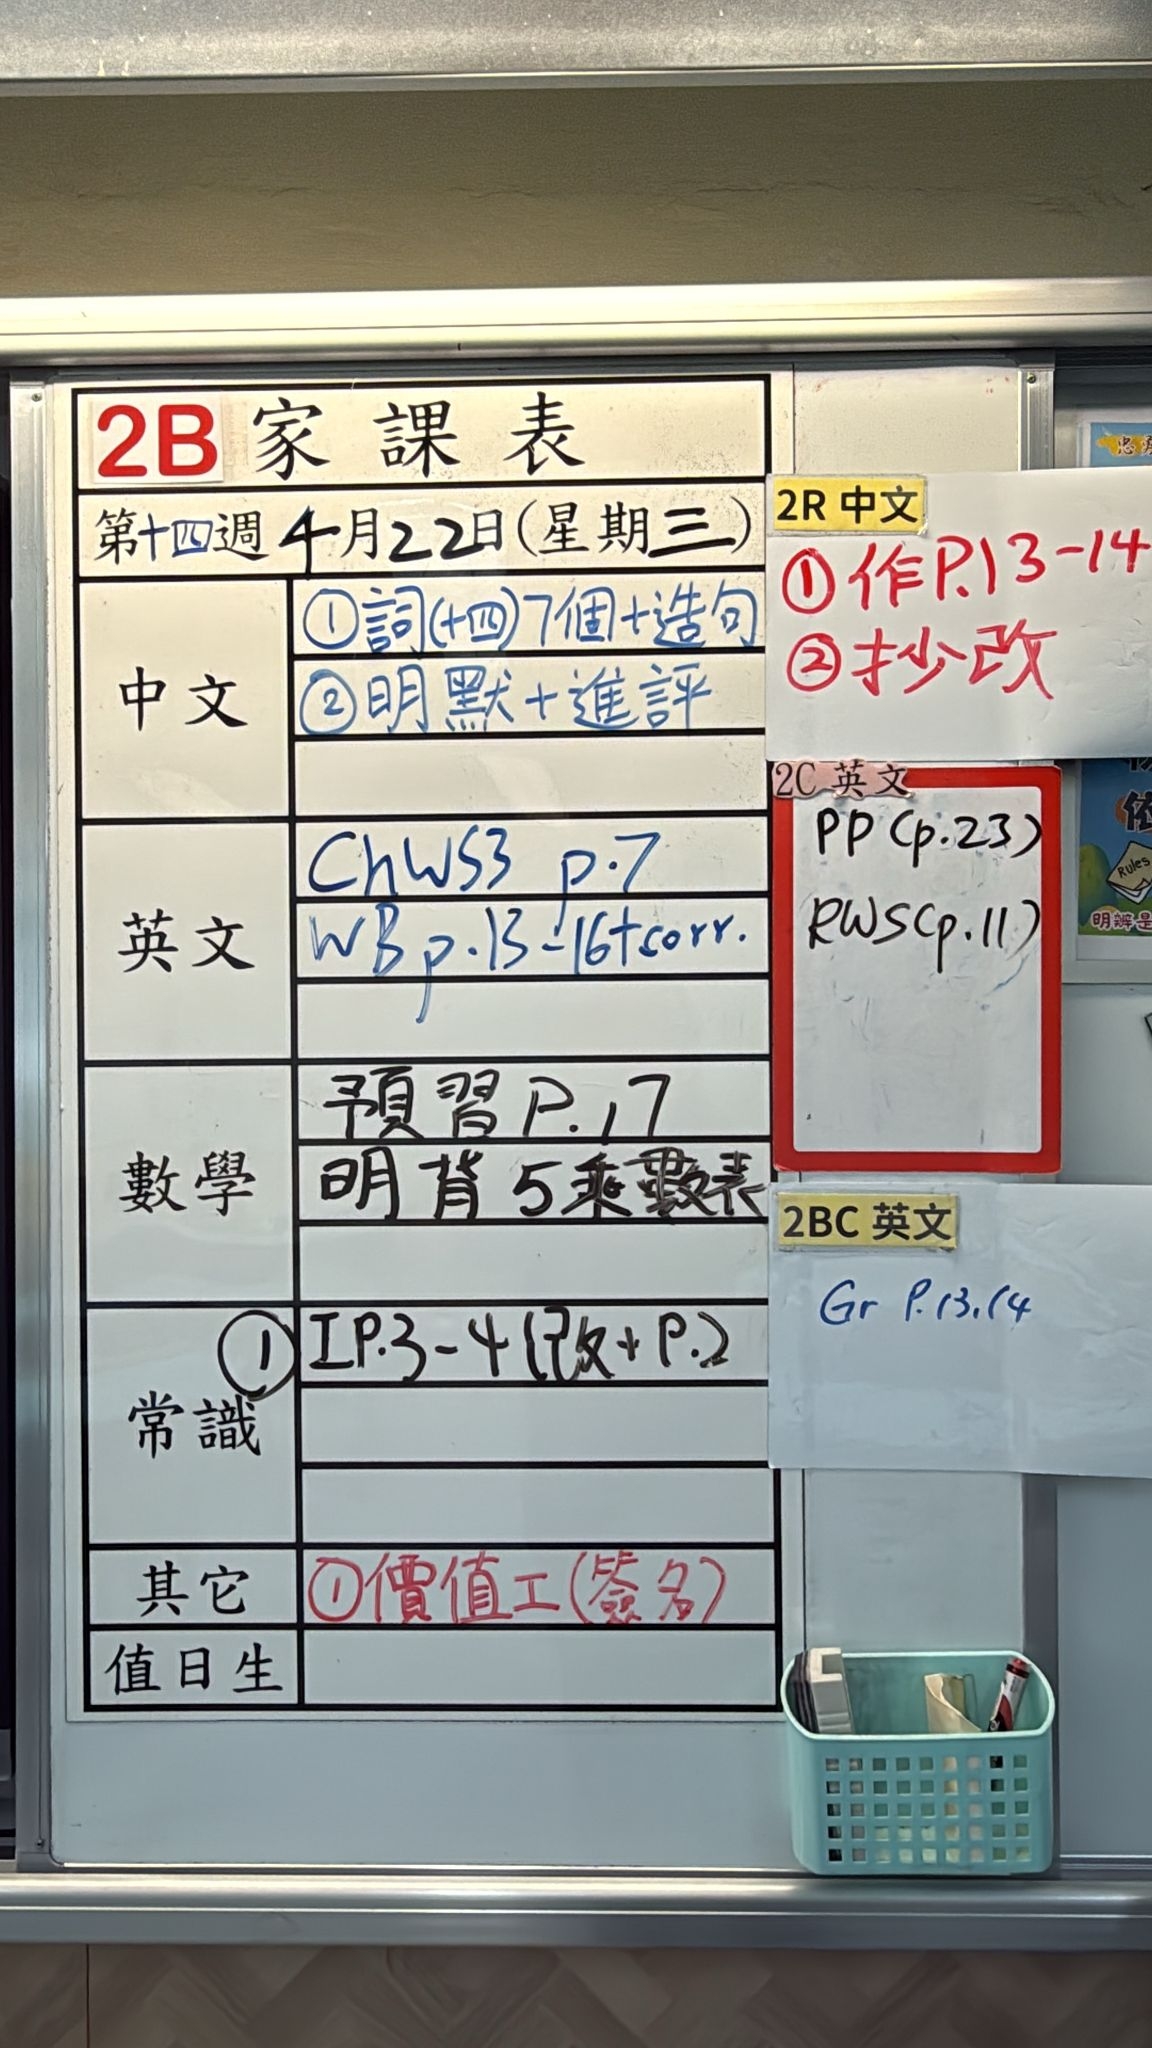 2B 家課表
第十四週 4月22日(星期三)
中文
①詞(十四)7個+造句
②明默+進評
英文
ChWS3 p.7
WB p.13-16+corr.
數學
預習P.17
明背5乘數表
常識
① IP.3-4(改+P.2
其它
①價值工(簽名)
值日生
2R 中文
①作P.13-14
②抄改
2C 英文
PP(p.23)
RWS(p.11)
2BC 英文
Gr P.13,14
Rules
明辨是